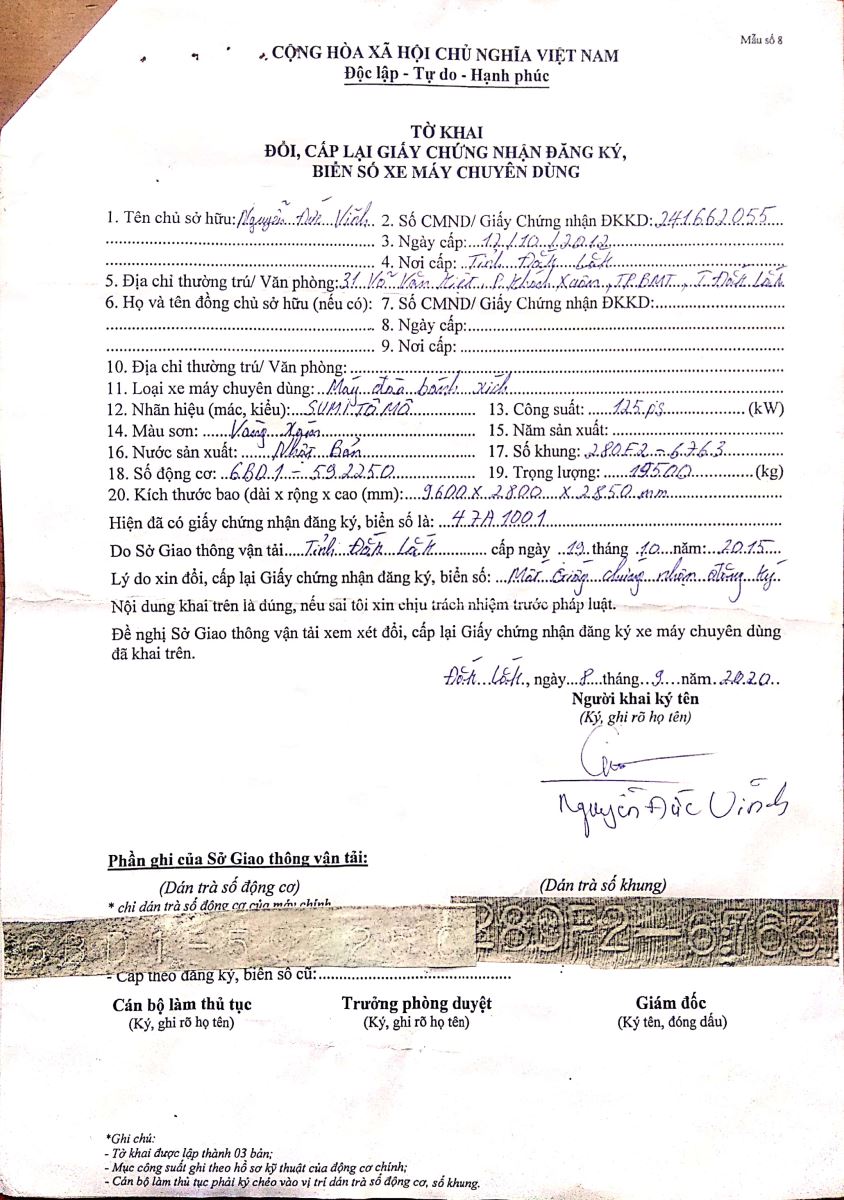 Mẫu số 8
CỘNG HÒA XÃ HỘI CHỦ NGHĨA VIỆT NAM
Độc lập - Tự do - Hạnh phúc
TỜ KHAI
ĐỔI, CẤP LẠI GIẤY CHỨNG NHẬN ĐĂNG KÝ,
BIỂN SỐ XE MÁY CHUYÊN DÙNG
1. Tên chủ sở hữu: Nguyễn Đức Vĩnh 2. Số CMND/ Giấy Chứng nhận ĐKKD: 241662055
3. Ngày cấp: 12/10/2012
4. Nơi cấp: Tỉnh Đắk Lắk
5. Địa chỉ thường trú/ Văn phòng: 31 Võ Văn Kiệt, P. Khánh Xuân, TP.BMT, T. Đắk Lắk
6. Họ và tên đồng chủ sở hữu (nếu có): 7. Số CMND/ Giấy Chứng nhận ĐKKD:
8. Ngày cấp:
9. Nơi cấp:
10. Địa chỉ thường trú/ Văn phòng:
11. Loại xe máy chuyên dùng: Máy đào bánh xích
12. Nhãn hiệu (mác, kiểu): SUMITÔMÔ 13. Công suất: 125 ps (kW)
14. Màu sơn: Vàng Xám 15. Năm sản xuất:
16. Nước sản xuất: Nhật Bản 17. Số khung: 280F2 - 6763
18. Số động cơ: 6BD1 - 592250 19. Trọng lượng: 19500 (kg)
20. Kích thước bao (dài x rộng x cao (mm): 9600 X 2800 X 2850 mm
Hiện đã có giấy chứng nhận đăng ký, biển số là: 47A1001
Do Sở Giao thông vận tải Tỉnh Đắk Lắk cấp ngày 19 tháng 10 năm: 2015
Lý do xin đổi, cấp lại Giấy chứng nhận đăng ký, biển số: Mất giấy chứng nhận đăng ký
Nội dung khai trên là đúng, nếu sai tôi xin chịu trách nhiệm trước pháp luật.
Đề nghị Sở Giao thông vận tải xem xét đổi, cấp lại Giấy chứng nhận đăng ký xe máy chuyên dùng
đã khai trên.
Đắk Lắk, ngày 8 tháng 9 năm 2020
Người khai ký tên
(Ký, ghi rõ họ tên)
Nguyễn Đức Vĩnh
Phần ghi của Sở Giao thông vận tải:
(Dán trà số động cơ) (Dán trà số khung)
* chỉ dán trà số động cơ của máy chính
280F2-6763
- Cấp theo đăng ký, biển số cũ:
Cán bộ làm thủ tục Trưởng phòng duyệt Giám đốc
(Ký, ghi rõ họ tên) (Ký, ghi rõ họ tên) (Ký tên, đóng dấu)
*Ghi chú:
- Tờ khai được lập thành 03 bản;
- Mục công suất ghi theo hồ sơ kỹ thuật của động cơ chính;
- Cán bộ làm thủ tục phải ký chéo vào vị trí dán trà số động cơ, số khung.